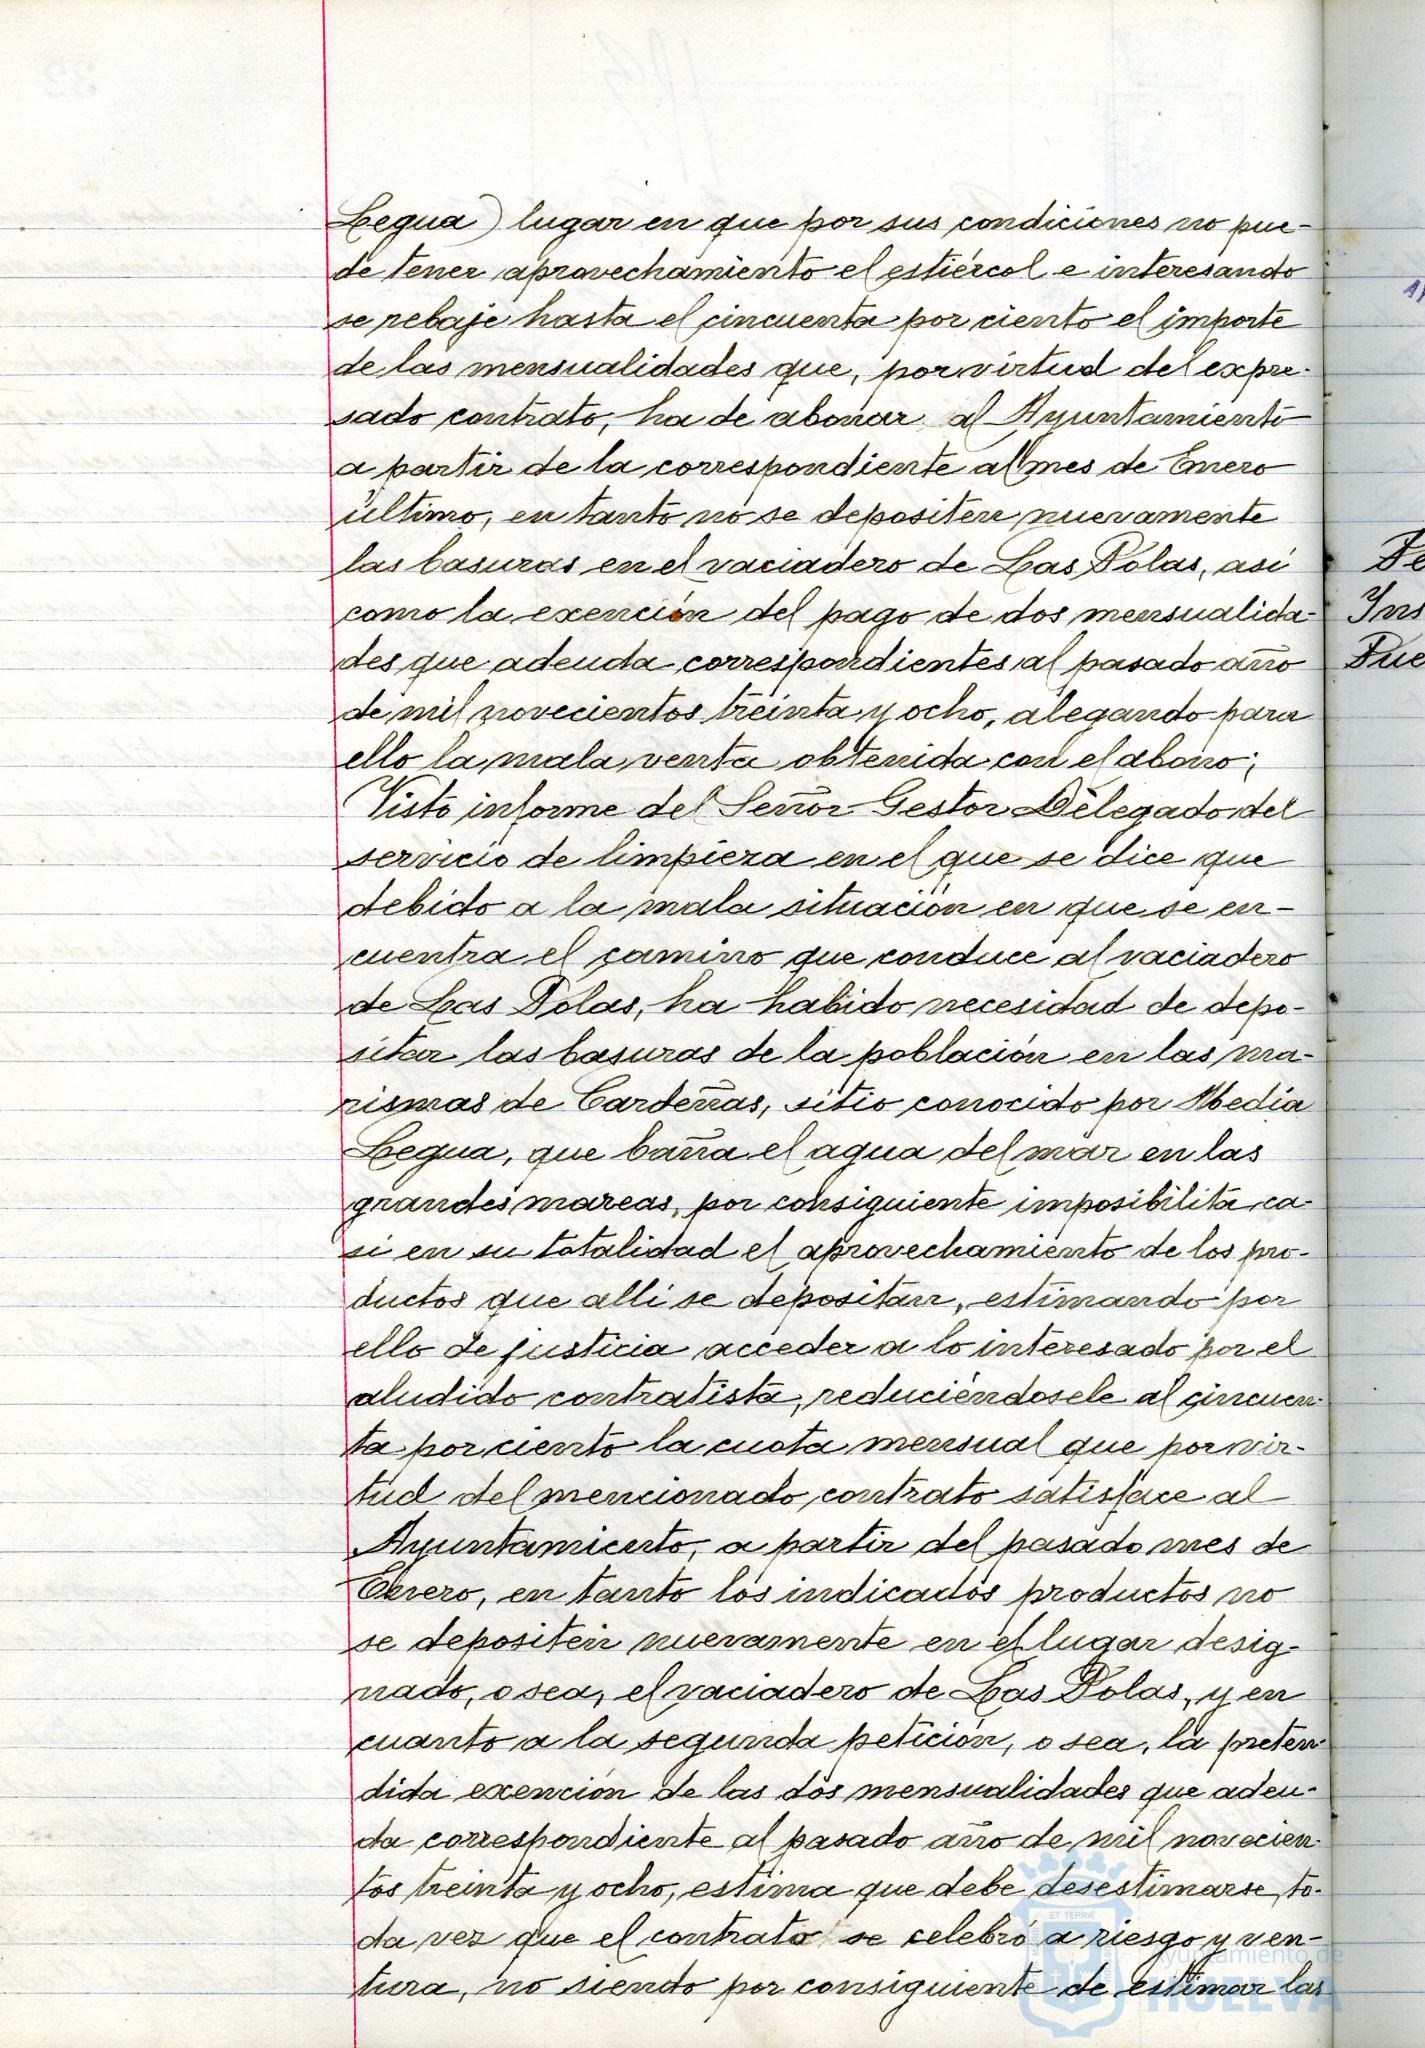 Legua) lugar en que por sus condiciones no pue-
de tener aprovechamiento el estiércol e interesando
se rebaje hasta el cincuenta por ciento el importe
de las mensualidades que, por virtud del expre-
sado contrato, ha de abonar al Ayuntamiento
a partir de la correspondiente al mes de Enero
último, en tanto no se depositere nuevamente
las basuras en el vaciadero de Las Polas, así
como la exención del pago de dos mensualida-
des que adeuda correspondientes al pasado año
de mil novecientos treinta y ocho, alegando para
ello la mala venta obtenida con el abono;
Visto informe del Señor Gestor Delegado del
servicio de limpieza en el que se dice que
debido a la mala situación en que se en-
cuentra el camino que conduce al vaciadero
de Las Polas, ha habido necesidad de depo-
sitar las basuras de la población en las ma-
rismas de Cardeñas, sitio conocido por Media
Legua, que baña el agua del mar en las
grandes mareas, por consiguiente imposibilita ca-
si en su totalidad el aprovechamiento de los pro-
ductos que allí se depositan, estimando por
ello de justicia acceder a lo interesado por el
aludido contratista, reduciéndosele al cincuen-
ta por ciento la cuota mensual que por vir-
tud del mencionado contrato satisface al
Ayuntamiento, a partir del pasado mes de
Enero, en tanto los indicados productos no
se depositen nuevamente en el lugar desig-
nado, o sea, el vaciadero de Las Polas, y en
cuanto a la segunda petición, o sea, la preten-
dida exención de las dos mensualidades que adeu-
da correspondiente al pasado año de mil novecien-
tos treinta y ocho, estima que debe desestimarse, to-
da vez que el contrato se celebró a riesgo y ven-
tura, no siendo por consiguiente de estimar las
De
Ins
Pue
Ayuntamiento de
HUELVA